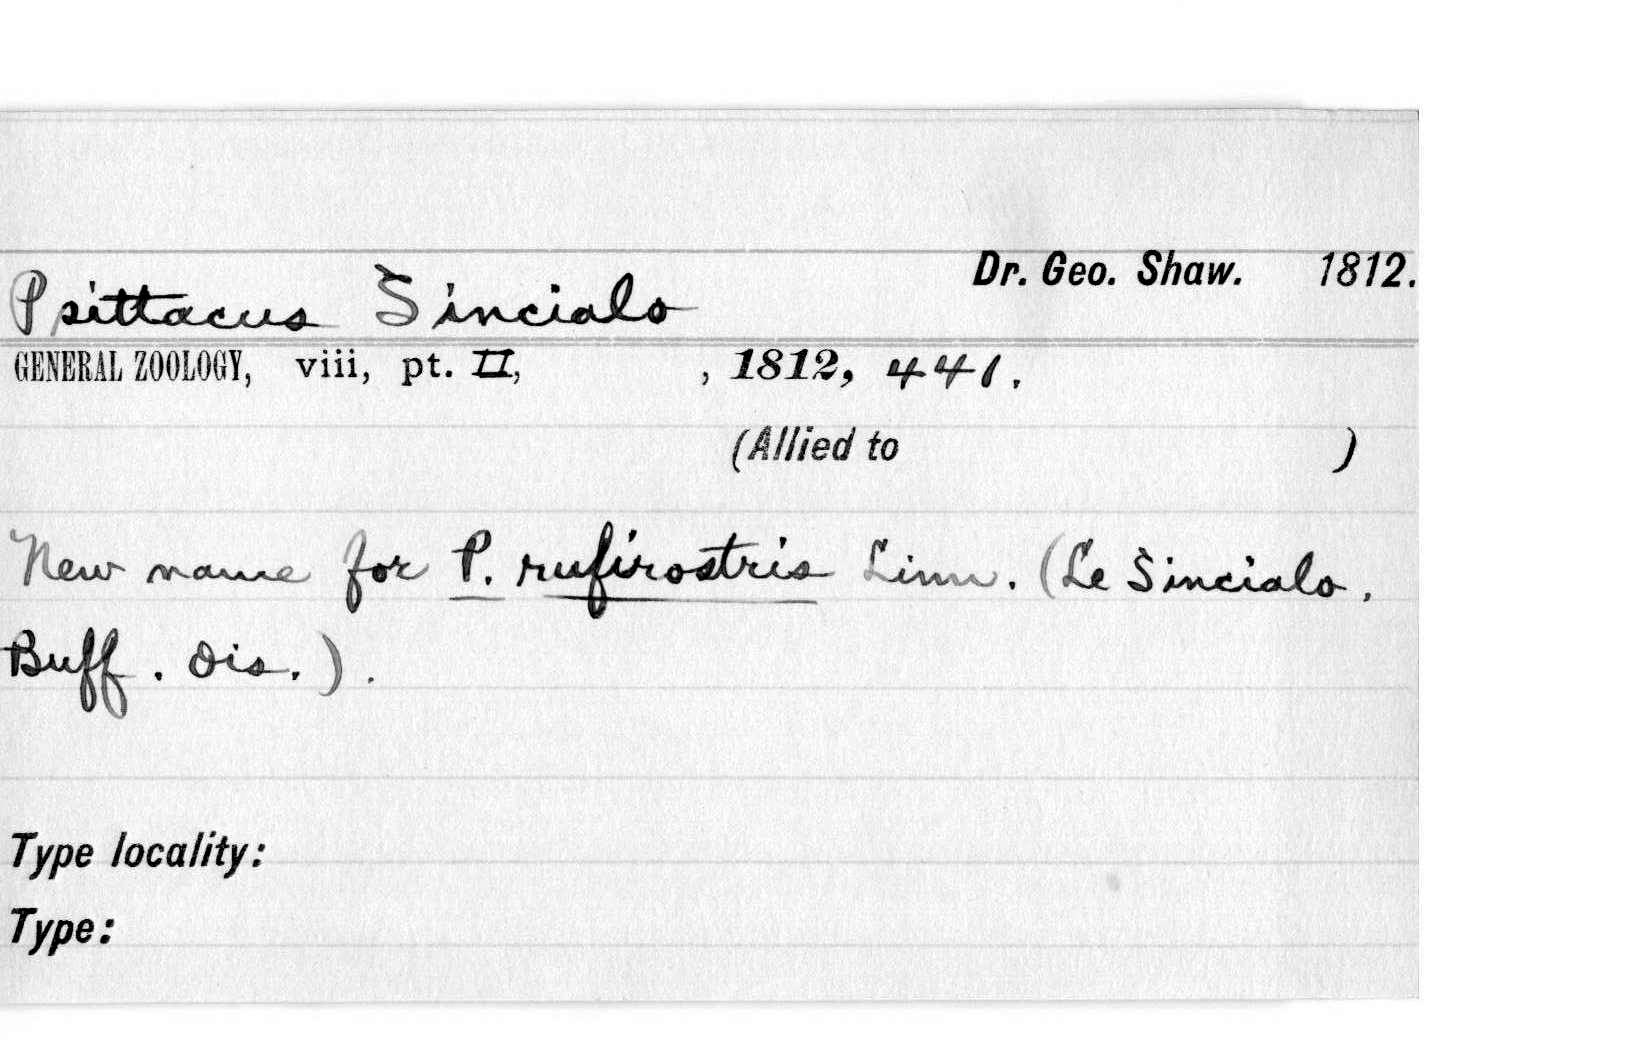 Dr. Geo. Shaw. 1812.
Psittacus Sincialo
GENERAL ZOOLOGY, viii, pt. II, , 1812, 441.
(Allied to )
New name for P. rufirostris Linn. (Le Sincialo,
Buff. Ois.).
Type locality:
Type: